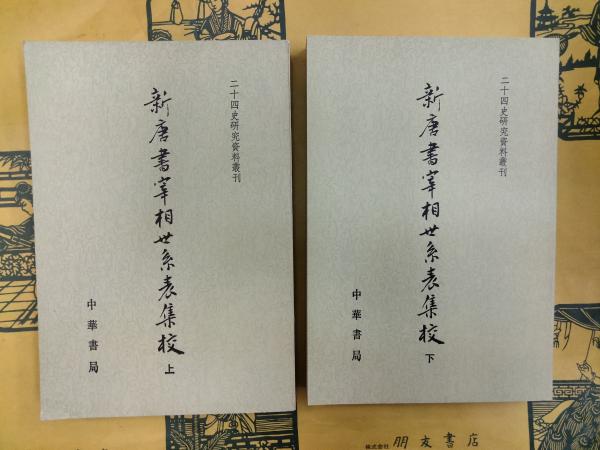 二十四史研究資料叢刊
新唐書宰相世系表集校
上
中華書局
二十四史研究資料叢刊
新唐書宰相世系表集校
下
中華書局
株式会社 朋友書店